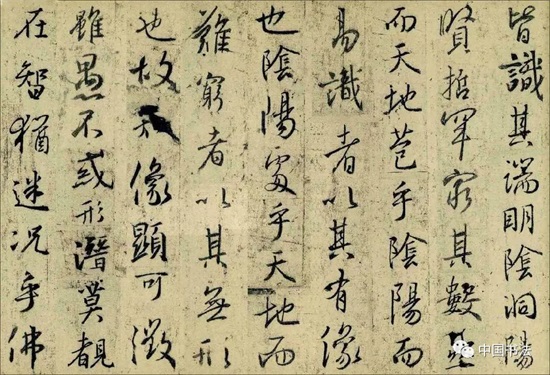 皆識其端明陰洞陽
賢哲罕窮其數然
而天地苞乎陰陽而
易識者以其有像
也陰陽處乎天地而
難窮者以其無形
也故知像顯可徵
雖愚不惑形潛莫覩
在智猶迷況乎佛
中国书法